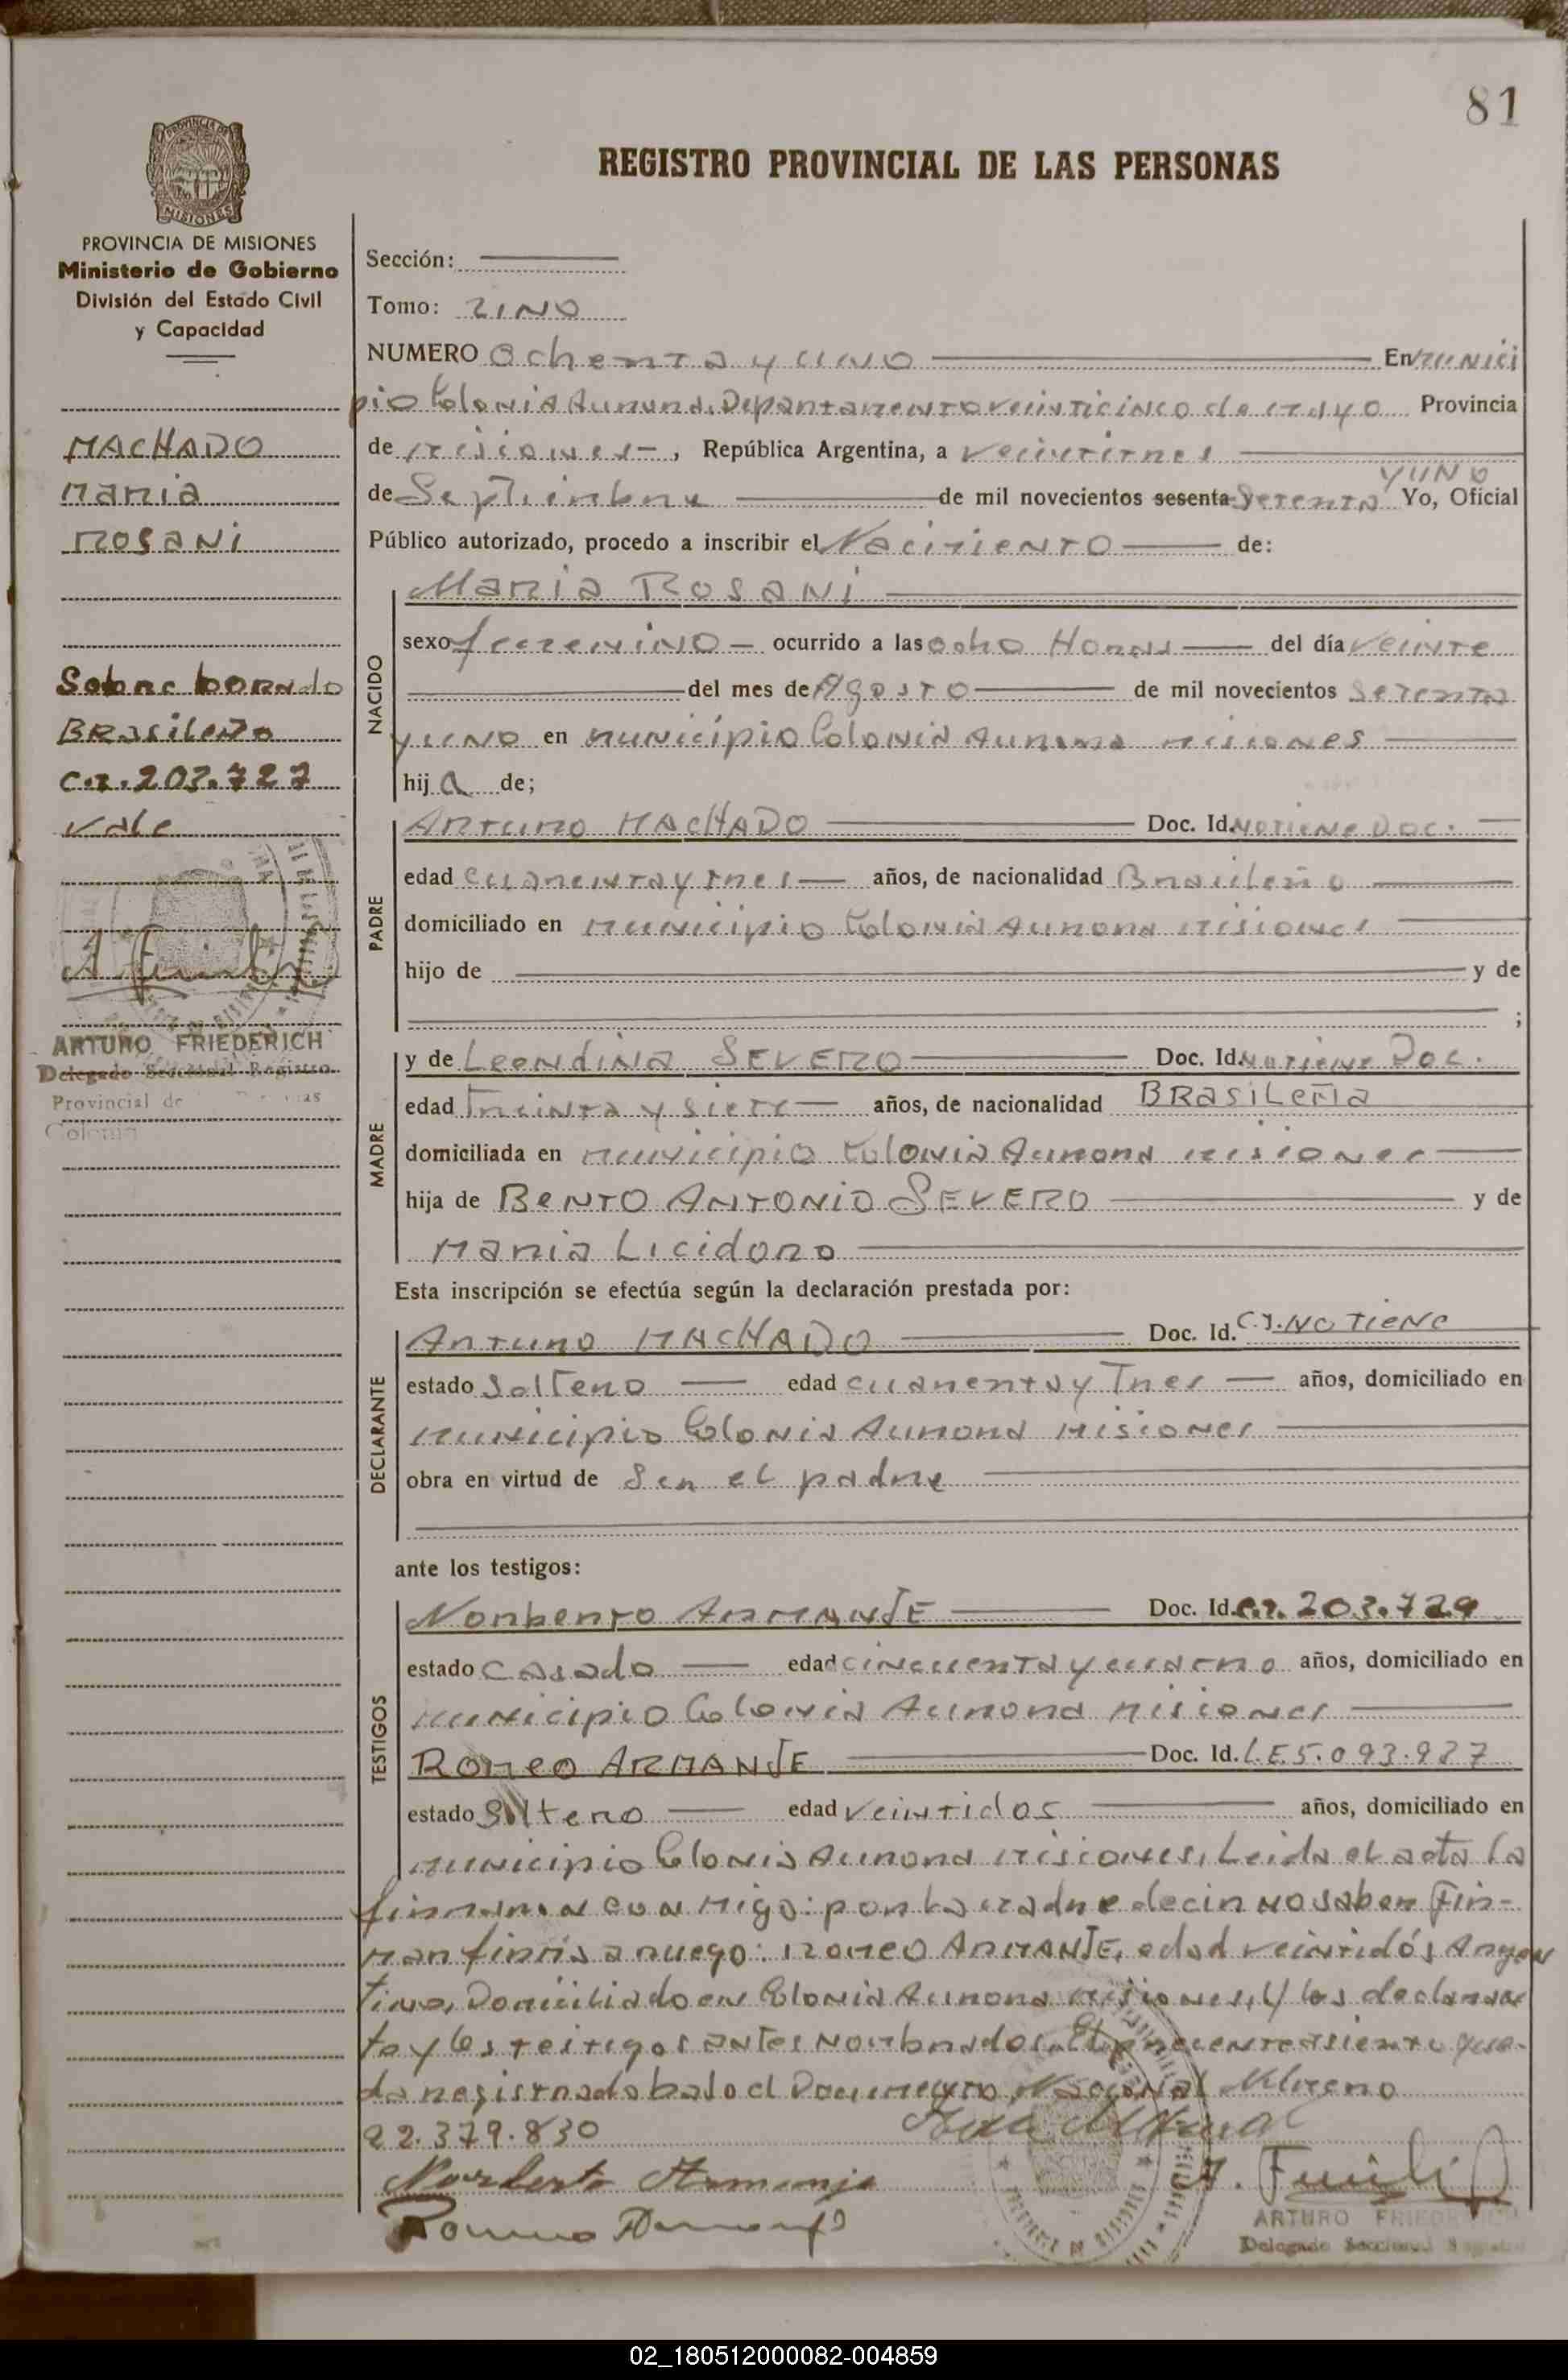 81
REGISTRO PROVINCIAL DE LAS PERSONAS
PROVINCIA DE MISIONES
Ministerio de Gobierno
División del Estado Civil
y Capacidad
MACHADO
Maria
Rosani
Sobre borrado
Brasileña
C.I. 203.727
Vale
ARTURO FRIEDERICH
Delegado Seccional Registro
Provincial de
Colonia
Sección:
Tomo: UNO
NUMERO Ochenta y uno En Munici
pio Colonia Aurora, Departamento veinticinco de Mayo Provincia
de Misiones, República Argentina, a veintitres
y UNO
de Septiembre de mil novecientos sesenta y Setenta Yo, Oficial
Público autorizado, procedo a inscribir el Nacimiento de:
Maria Rosani
NACIDO
sexo femenino ocurrido a las ocho Horas del día veinte
del mes de Agosto de mil novecientos Setenta
y uno en municipio Colonia Aurora misiones
hija de;
PADRE
Arturo MACHADO Doc. Id. No tiene Doc.
edad cuarenta y tres años, de nacionalidad Brasileño
domiciliado en municipio Colonia Aurora misiones
hijo de y de
;
MADRE
y de Leondina SEVERO Doc. Id. No tiene Doc.
edad Treinta y siete años, de nacionalidad BRASILEÑA
domiciliada en municipio Colonia Aurora misiones
hija de Bento Antonio SEVERO y de
Maria Licidoro
Esta inscripción se efectúa según la declaración prestada por:
DECLARANTE
Arturo MACHADO Doc. Id. C.I. NO TIENE
estado Soltero edad cuarenta y Tres años, domiciliado en
municipio Colonia Aurora Misiones
obra en virtud de Ser el padre
ante los testigos:
TESTIGOS
Norberto ARMANJE Doc. Id. C.I. 203.729
estado Casado edad cincuenta y cuatro años, domiciliado en
municipio Colonia Aurora Misiones
Romeo ARMANJE Doc. Id. L.E. 5.093.987
estado Soltero edad veintidos años, domiciliado en
municipio Colonia Aurora misiones, Leida el acta la
firmaron con migo: por la madre decir no saber Fir-
mar firma a ruego: Romeo ARMANJE, edad veintidós Argen
tino, Domiciliado en Colonia Aurora misiones, y los declaran
te y los testigos antes nombrados. El presente asiento que-
da registrado bajo el Documento Nacional Número
22.379.830
Norberto Armanje
Romeo Armanje
ARTURO FRIEDERICH
Delegado Seccional Registro
02_180512000082-004859